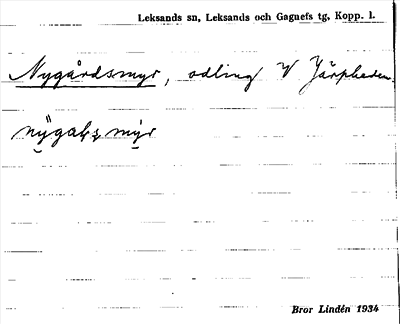 Leksands sn, Leksands och Gagnefs tg, Kopp. l.
Nygårdsmyr, odling V Järpheden.
Bror Lindén 1934